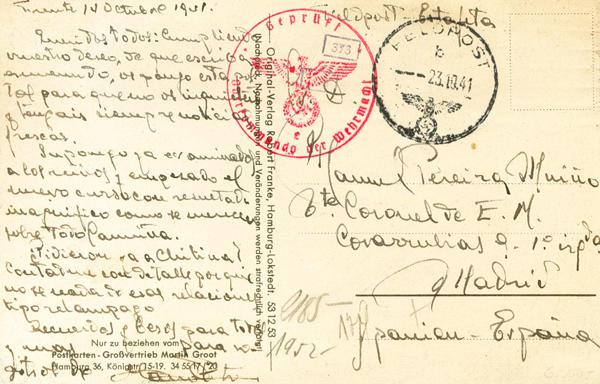 Frente 14 Octubre 1941.
Queridos todos: Cumpliendo
vuestro deseo, de que escriba
os pongo esta pos
tal para que no os inquieteis
y tengais siempre noticias
frescas.
Supongo ya examinados
a los chicos y empezado el
nuevo curso con resultado
magnifico como se merecen
sobre todo
Pidieron a a Chitina?
contadme con detalle porque
no se nada de esas relaciones
tipo relampago
Recuerdos y besos para todos
y para
de
Nur zu beziehen vom
Postkarten - Großvertrieb Martin Groot
Hamburg 36, Königstr. 15-19. 34 55 17 / 20
Original-Verlag Robert Franke, Hamburg-Lokstedt. 53 12 53
(Nachdruck, Nachahmungen und Veränderungen werden strafrechtlich verfolgt)
Geprüft
373
e
der Wehrmacht
Feldpost - Estafeta
FELDPOST
b
23.10.41
Manuel Pereira Muiño
Tte Coronel de E. M.
Covarrubias 9 - 1º izqda
Madrid
Spanien - España
1952-